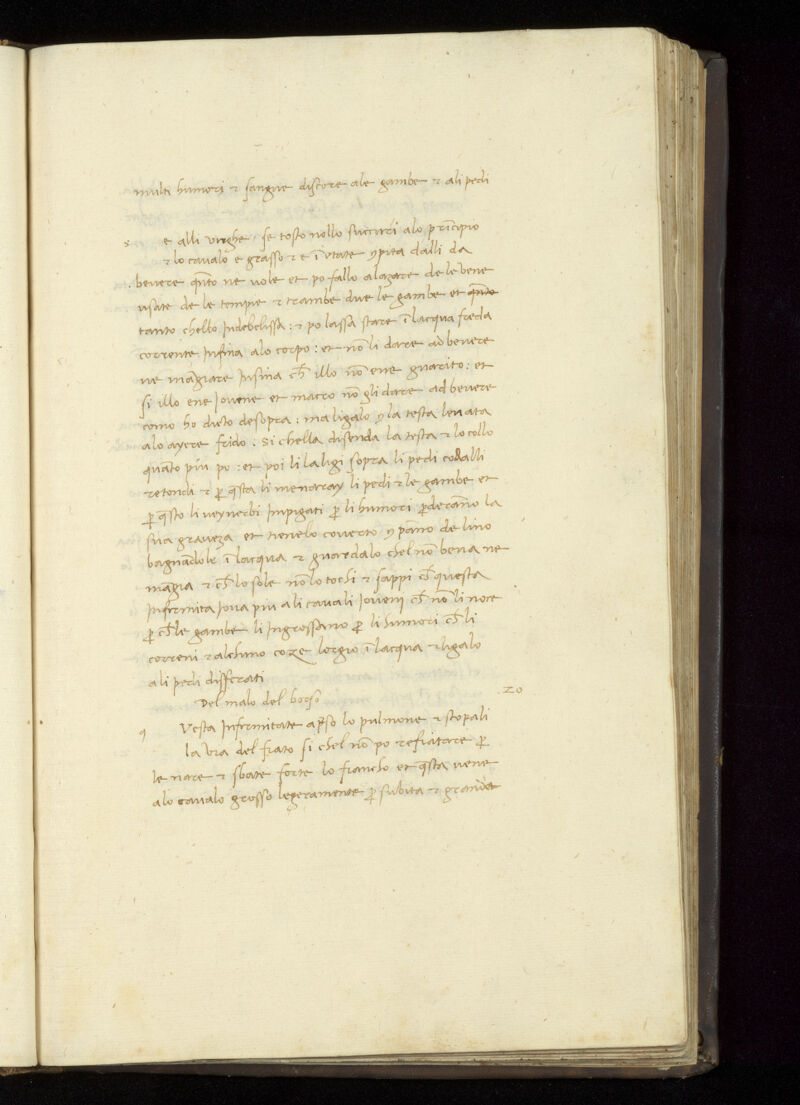 multi humori et sangue discore ale gambe et ali pedi
s e alli unghe. se tosto nollo succurri alo principio
et lo cavalo e grasso et e ī etate ypita dalli da
bevere qn̄to ne vole et po fallo alazare de le bene
usate de le tempie et trambe due le gambe et qn̄to
tanto chello Indebelissa: et po lassa stare ī lacqua freda
corrente Infina alo corpo: et nō li dare ad bevere
ne mangiare Insina ch̄ illo nō ene guarito: et
si illo ene Jovene et macro nō gli dare ad bevere
como ho dicto desopra: ma ligalo y la testa levata
alo ayere frido. si chella disenda la testa et lo collo
quāto piu po: et poi li la ligi sopra li pedi codalli
retondi et p̄ q̄sta li menaray li pedi et le gambe et
p̄ q̄sto li veynerbi Impigati p̄ li humori p̄derāno la
sua graveza et tienelo coverto y pāno de lino
bagnādole ī lacqua et guardalo chel nō beva ne
māgia et ch̄ lo sole nō lo tochi et sappi ch̄ questa
Infirmita Jova piu ali cavali Joveni ch̄ nō li noce
p̄ ch̄ le gambe li Ingrossano p̄ li humori ch̄ li
correni et alchuno coze lorgio ī lacqua et ligalo
ali pedi disferati
Del malo del bolso 20
q Vesta Infirmitate ap̄so lo pulmone et stopali
la via del fiato si chel nō po refiatare p̄
le nare et sbate forte lo fiancho et q̄sta vene
alo cavalo grosso legeramente p̄ subita et grande